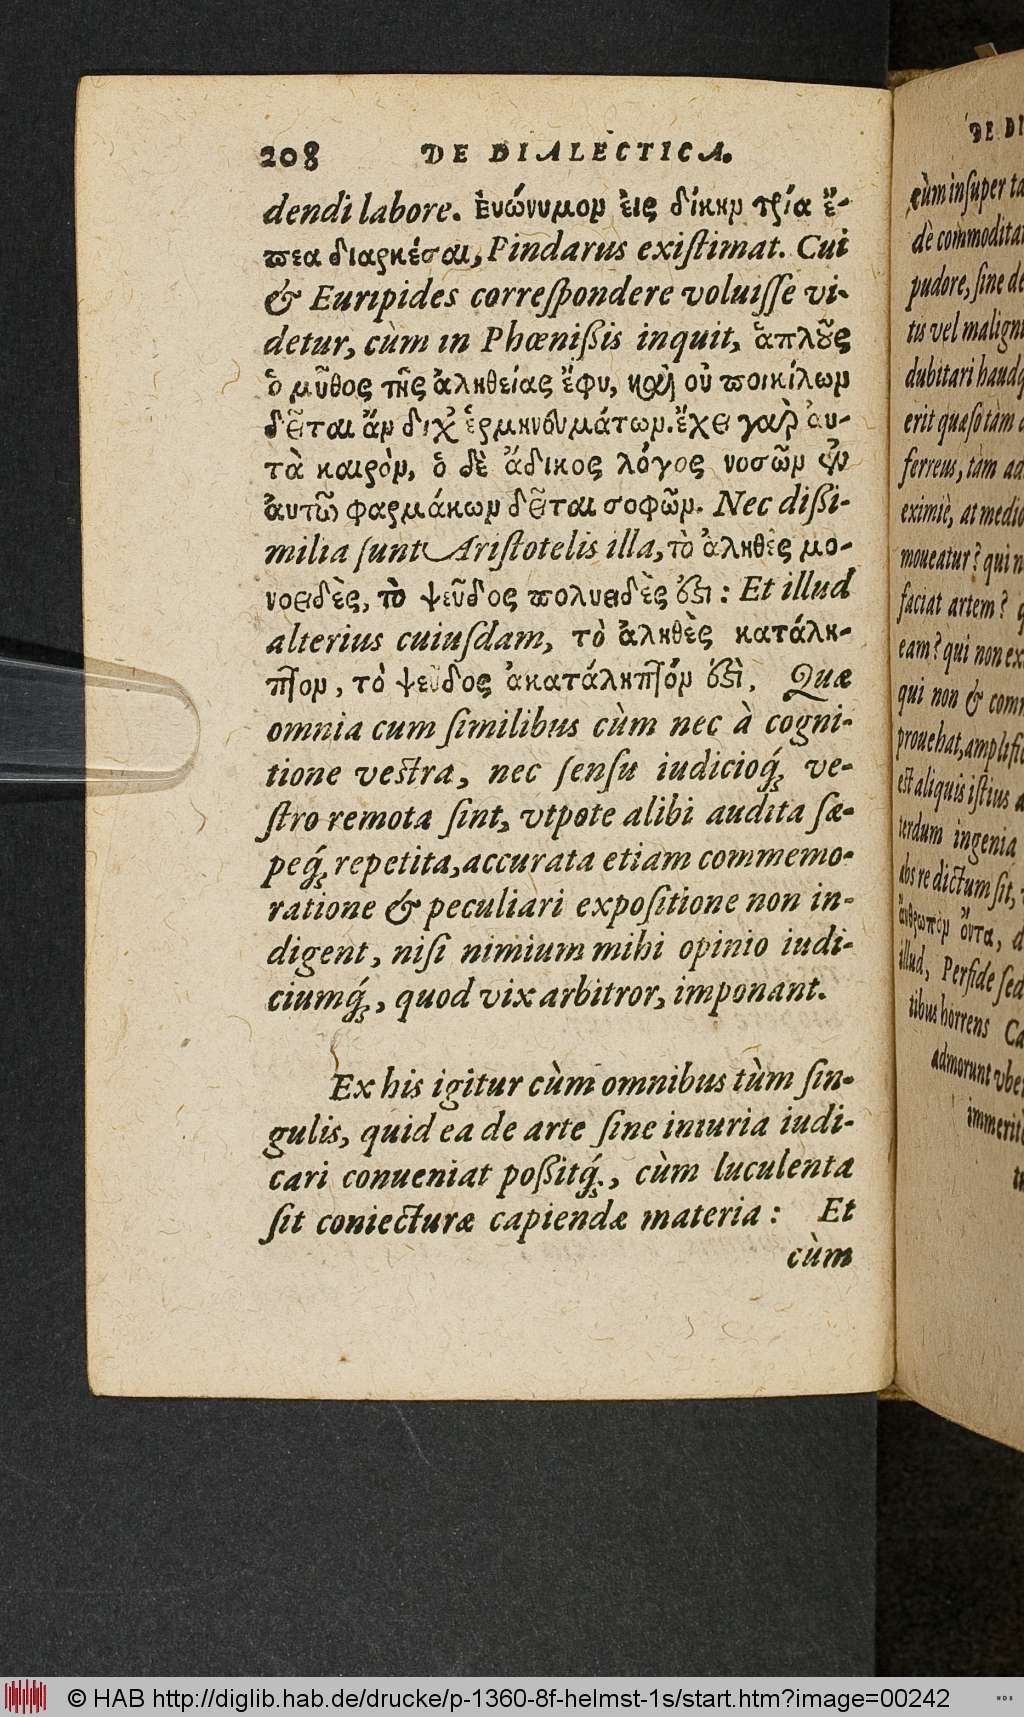 208 DE DIALECTICA.
dendi labore. Ἐυώνυμον ἐις δίκην τρία ἔ-
πεα διαρκέσαι, Pindarus existimat. Cui
& Euripides correspondere voluisse vi-
detur, cùm in Phœnißis inquit, ἁπλοῦς
ὁ μῦθος τῆς ἀληθείας ἔφυ, καὶ οὐ ποικίλων
δεῖται ἂν διχ ἑρμηνευμάτων. ἔχει γαὶρ ἀυ-
τὰ καιρὸν, ὁ δὲ ἄδικος λόγος νοσῶν ἐν
ἀυτῶ φαρμάκων δεῖται σοφῶν. Nec dißi-
milia sunt Aristotelis illa, τὸ ἀληθὲς μο-
νοειδὲς, τὸ ψεῦδος πολυειδὲς ὄξι : Et illud
alterius cuiusdam, τὸ ἀληθὲς κατάλη-
πτον, τὸ ψεῦδος ἀκατάληπτόν ὄξὶ. Quæ
omnia cum similibus cùm nec à cogni-
tione vestra, nec sensu iudicioq́; ve-
stro remota sint, vtpote alibi audita sæ-
peq́; repetita, accurata etiam commemo-
ratione & peculiari expositione non in-
digent, nisi nimium mihi opinio iudi-
ciumq́;, quod vix arbitror, imponant.
Ex his igitur cùm omnibus tùm sin-
gulis, quid ea de arte sine iniuria iudi-
cari conueniat poßitq́;., cùm luculenta
sit coniecturæ capiendæ materia : Et
cùm
DE DI
cùm insuper ta
dè commoditat
pudore, sine de
tis vel maligni
dubitari haudq
erit quæso tàm
ferreus, tàm ad
eximiè, at medio
moueatur? qui n
faciat artem? q
eam? qui non ex
qui non & comm
prouehat, amplific
est aliquis istius a
terdum ingenia
abs re dictum sit,
ἄνθρωπον ὄντα, d
illud, Perfide sed
tibus horrens Ca
admorunt vber
immerito
© HAB http://diglib.hab.de/drucke/p-1360-8f-helmst-1s/start.htm?image=00242